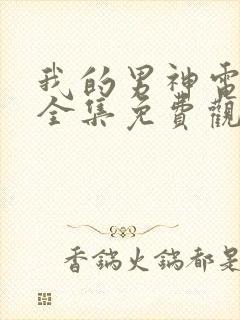 我的男神電
全集免費觀
香鍋火鍋都是